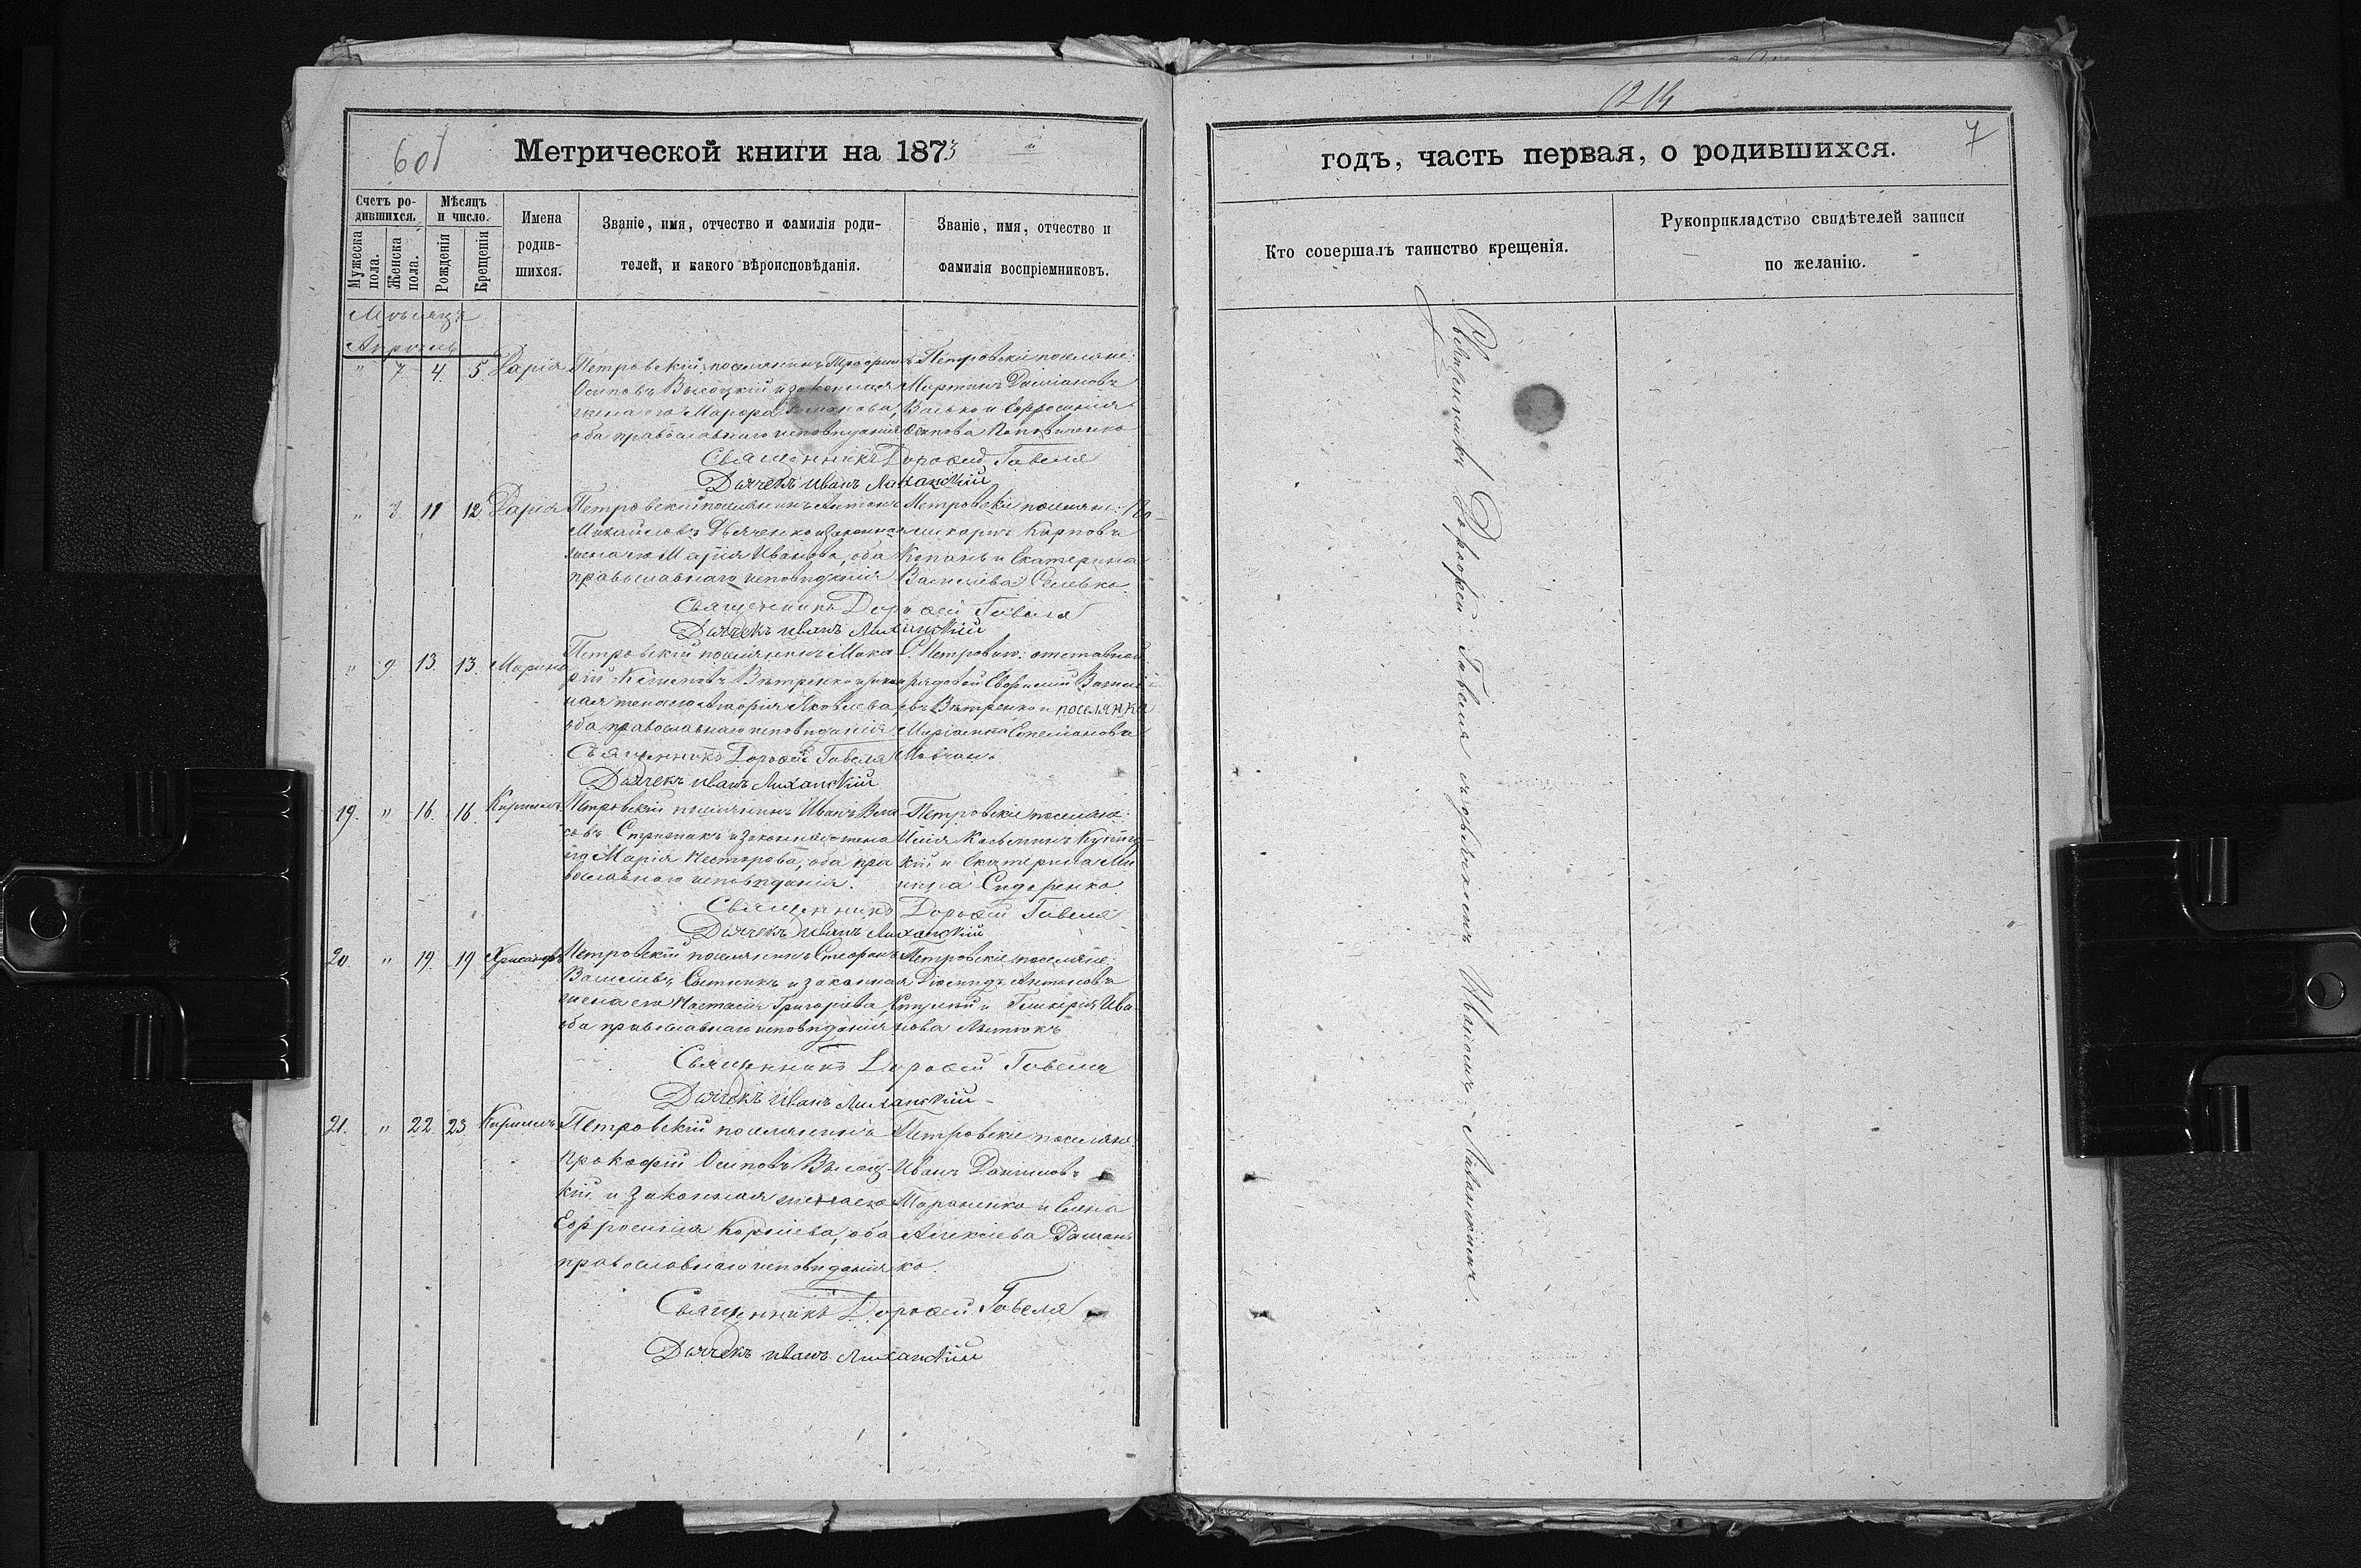 1214
601
Метрической книги на 1873
годъ, часть первая, о родившихся.
7
Счетъ ро-
дившихся.
Мѣсяцъ
и число.
Мужеска
пола.
Женска
пола.
Рожденія
Крещенія
Имена
родив-
шихся.
Званіе, имя, отчество и фамилія роди-
телей, и какого вѣроисповѣданія.
Званіе, имя, отчество и
фамилія воспріемниковъ.
Кто совершалъ таинство крещенія.
Рукоприкладство свидѣтелей записи
по желанію.
Мѣсяцъ
Апрѣль
" 7. 4. 5. Дарія
Петровскій поселянинъ
Осиповъ Высоцкій и законная
жена его Марфа Романова,
оба православнаго исповѣданія
Петровскіе поселяне:
Мартинъ Даміановъ
Васько и Евфросинія
Осипова
Священникъ Дорофей Гавеля
Дьячекъ Иванъ Лиханскій
" 8. 11 12 Дарія
Петровскій поселянинъ Антонъ
Михайловъ Дьяченко и законная
жена его Марія Иванова, оба
православнаго исповѣданія
Петровскіе поселяне: По-
ликарпъ Карповъ
Копанъ и Екатерина
Василіева
Священникъ Дорофей Гавеля
Дьячекъ Иванъ Лиханскій
" 9 13. 13. Марина
Петровскій поселянинъ Мака-
рій Вѣтренко и закон-
ная жена его Марія Яковлева,
оба православнаго исповѣданія
С. Петровки: отставной
рядовой Евфимій Василі-
евъ Вѣтренко и поселянка
Стефанова
Мовчанъ
Священникъ Дорофей Гавеля
Дьячекъ Иванъ Лиханскій
19. " 16. 16. Кириллъ
Петровскій поселянинъ Иванъ Вла-
совъ и законная жена
его Марія Несторова, оба пра-
вославнаго исповѣданія.
Петровскіе поселяне:
Илія Косьминъ
кій и Екатерина Ми-
нина Сидоренко
Священникъ Дорофей Гавеля
Дьячекъ Иванъ Лиханскій
20. " 19. 19. Хрисанфъ
Петровскій поселянинъ Стефанъ
Василіевъ Сытникъ и законная
жена его Настасія Григоріева,
оба православнаго исповѣданія
Петровскіе поселяне:
Діомидъ Антоновъ
и Гликерія Ива-
нова
Священникъ Дорофей Гавеля
Дьячекъ Иванъ Лиханскій
21. " 22. 23. Кириллъ
Петровскій поселянинъ
Прокофій Осиповъ Высоц-
кій и законная жена его
Евфросинія Корніева, оба
православнаго исповѣданія
Петровскіе поселяне:
Иванъ Даниловъ
Тараненко и Елена
Алексіева Рашен-
ко.
Священникъ Дорофей Гавеля
Дьячекъ Иванъ Лиханскій
Священникъ Дорофей Гавеля съ дьячкомъ Иваномъ Лиханскимъ.